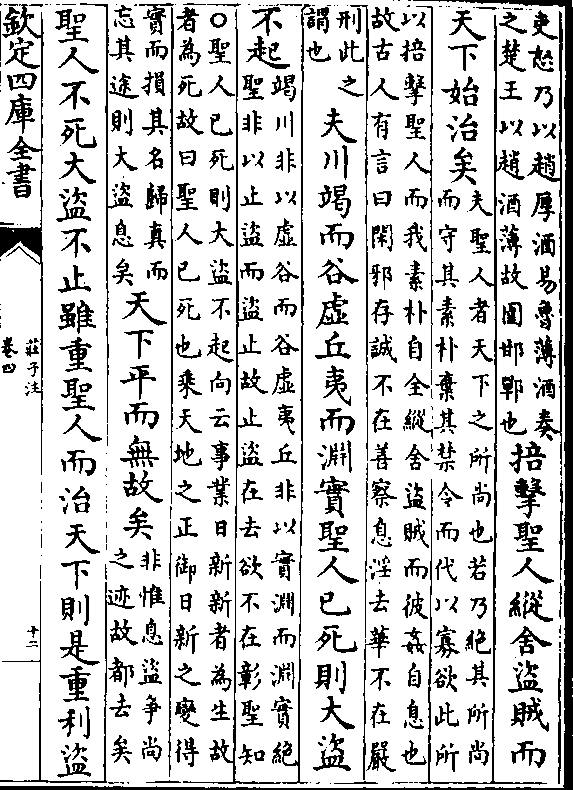 吏怒乃以趙厚酒易魯薄酒奏
之楚王以趙酒薄故圍邯鄲也
掊擊聖人縱舍盜賊而
天下始治矣
夫聖人者天下之所尚也若乃絕其所尚
而守其素朴棄其禁令而代以寡欲此所
以掊擊聖人而我素朴自全縱舍盜賊而彼姦自息也
故古人有言曰閑邪存誠不在善察息淫去華不在嚴
刑此之
謂也
夫川竭而谷虛丘夷而淵實聖人已死則大盜
不起
竭川非以虛谷而谷虛夷丘非以實淵而淵實絕
聖非以止盜而盜止故止盜在去欲不在彰聖知
○聖人已死則大盜不起向云事業日新新者為生故
者為死故曰聖人已死也乘天地之正御日新之變得
實而損其名歸真而
忘其途則大盜息矣
天下平而無故矣
非惟息盜爭尚
之迹故都去矣
聖人不死大盜不止雖重聖人而治天下則是重利盜
欽定四庫全書
莊子注
卷四
十二